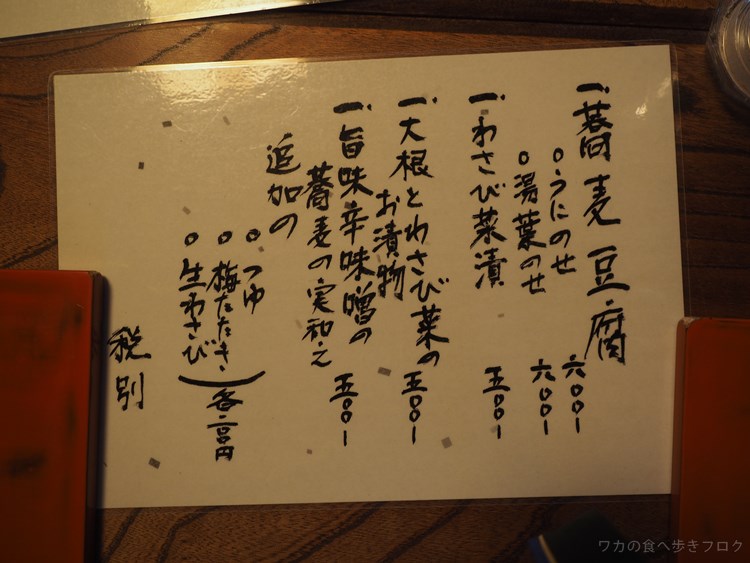 一、蕎麦豆腐
○うにのせ 六〇〇ー
○湯葉のせ 六〇〇ー
一、わさび菜漬 五〇〇ー
一、大根とわさび菜の
お漬物 五〇〇ー
一、旨味辛味噌の
蕎麦の実和え 五〇〇ー
追加の
○つゆ
○梅たたき
○生わさび
各二〇〇円
税別
ワカの食べ歩きブログ